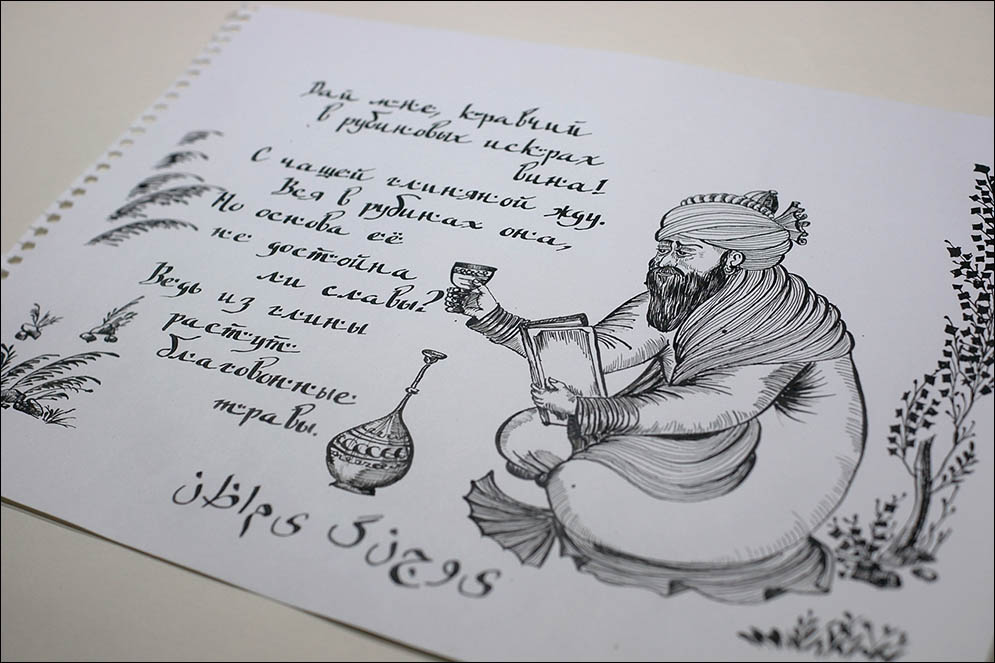 Дай мне, кравчий
в рубиновых искрах
вина!
С чашей глиняной жду.
Вся в рубинах она,
Но основа её
не достойна
ли славы?
Ведь из глины
растут
благовонные
травы.
نظامی گنجوی